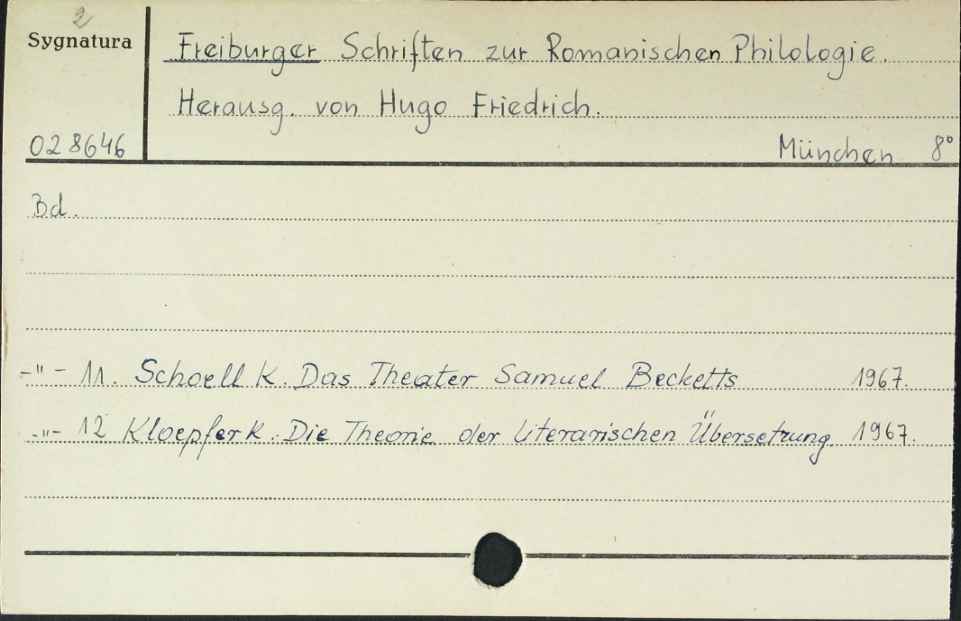 2
Sygnatura
Freiburger Schriften zur Romanischen Philologie.
Herausg. von Hugo Friedrich.
028646
München 8°
Bd.
-"- 11. Schoell K. Das Theater Samuel Becketts 1967.
-"- 12 Kloepfer K. Die Theorie der literarischen Übersetzung 1967.